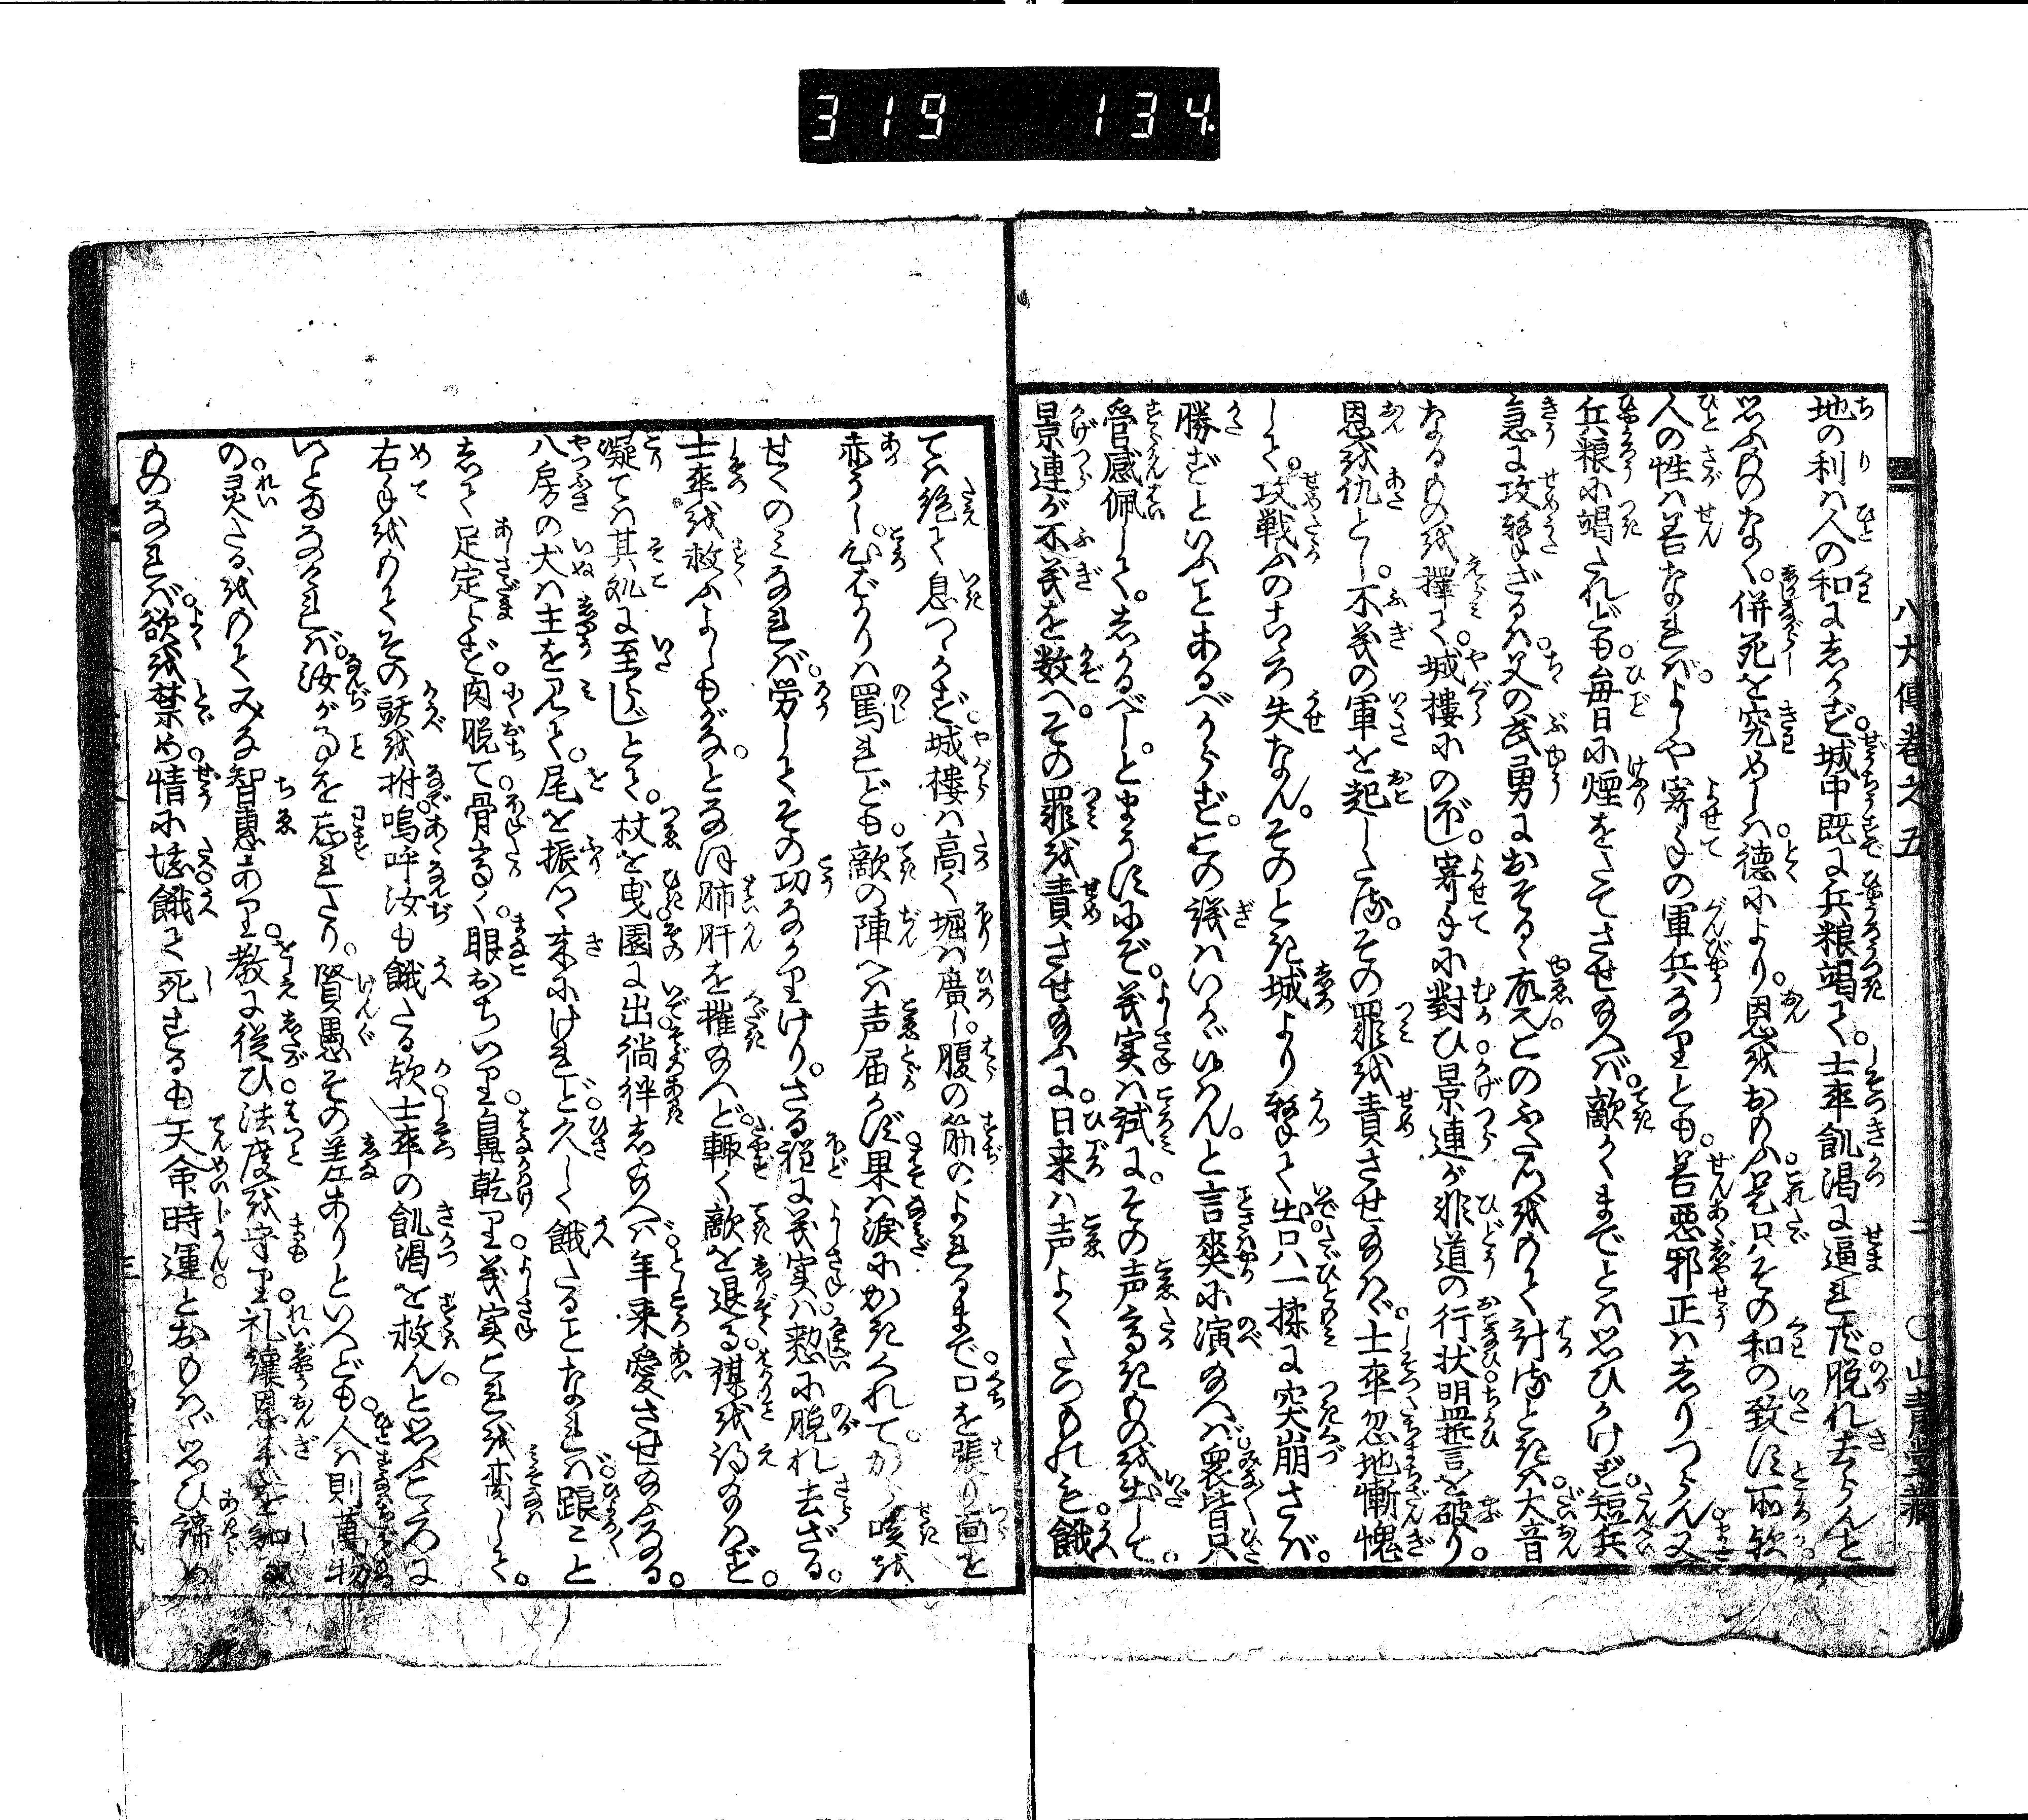 319 134.
八犬傳巻之五 二 ○山青堂藏
地の利は人の和にしかず。城中既に兵粮竭て。士卒飢渇に逼れど脱れ去らんと
思ふものなく。併死を究めしは徳により。恩をおもふ是只その和の致す所歟。
人の性は善なれば。よしや寄手の軍兵なりとも。善悪邪正はしりつらん。又
兵粮に竭たれども。毎日に煙をたてさせ給へば。敵かくまでとは思ひかけず。短兵
急に攻撃ざるは。父の武勇におそるゝ故也。このふたつをもて計るときは。大音
なるものを擇て。城樓にのぼし。寄手に對ひ。景連が非道の行状。盟言を破り。
恩を仇とし。不義の軍を起したる。その罪を責させ給はゞ。士卒忽地慚愧
して。攻戦ふのこゝろ失なん。そのとき城より撃て出。只一揉に突崩さば。
勝ずといふことあるべからず。この議はいかゞゆはん。と言爽に演給へば。衆皆只
管感佩して。しかるべし。とまうすにぞ。義実は試に。その声高きものを出して。
景連が不義を数へ。その罪を責させ給ふに。日来は声よくたつものも。餓
ては絶て息つゞかず。城樓は高く堀は廣し。腹の筋のよれるまで。口を張り面を
赤うし。心ばかりは罵れども。敵の陣へは声届かず。果は涙にかきくれて。かゝる咳を
せくのみなれば。労してその功なかりけり。さる程に義実は。愁に脱れ去ざる。
士卒を救ふよしもがな。となほ肺肝を摧給へど。輙く敵を退る。謀を得給はず。
凝ては其処に至らじとて。杖を曳園に出。徜徉し給へば。年来愛させ給ふなる。
八房の犬は主を見て。尾を振つゝ来にけれど。久しく餓たることなれば。踉々と
して足定らず。肉脱て骨高く。眼おちいり。鼻乾り。義実これを臠して。
右手をもてその頭を拊。嗚呼汝も餓たる歟。士卒の飢渇を救ん。と思ふこゝろに
いとまなければ。汝が事を忘れたり。賢愚その差ありといへども。人は則萬物
の灵たるをもて。みな智恵あり。教に従ひ法度を守り。礼譲恩義を知る
ものなれば。欲を禁め。情に堪。餓て死するも天命時運とおもはゞ思ひ諦め